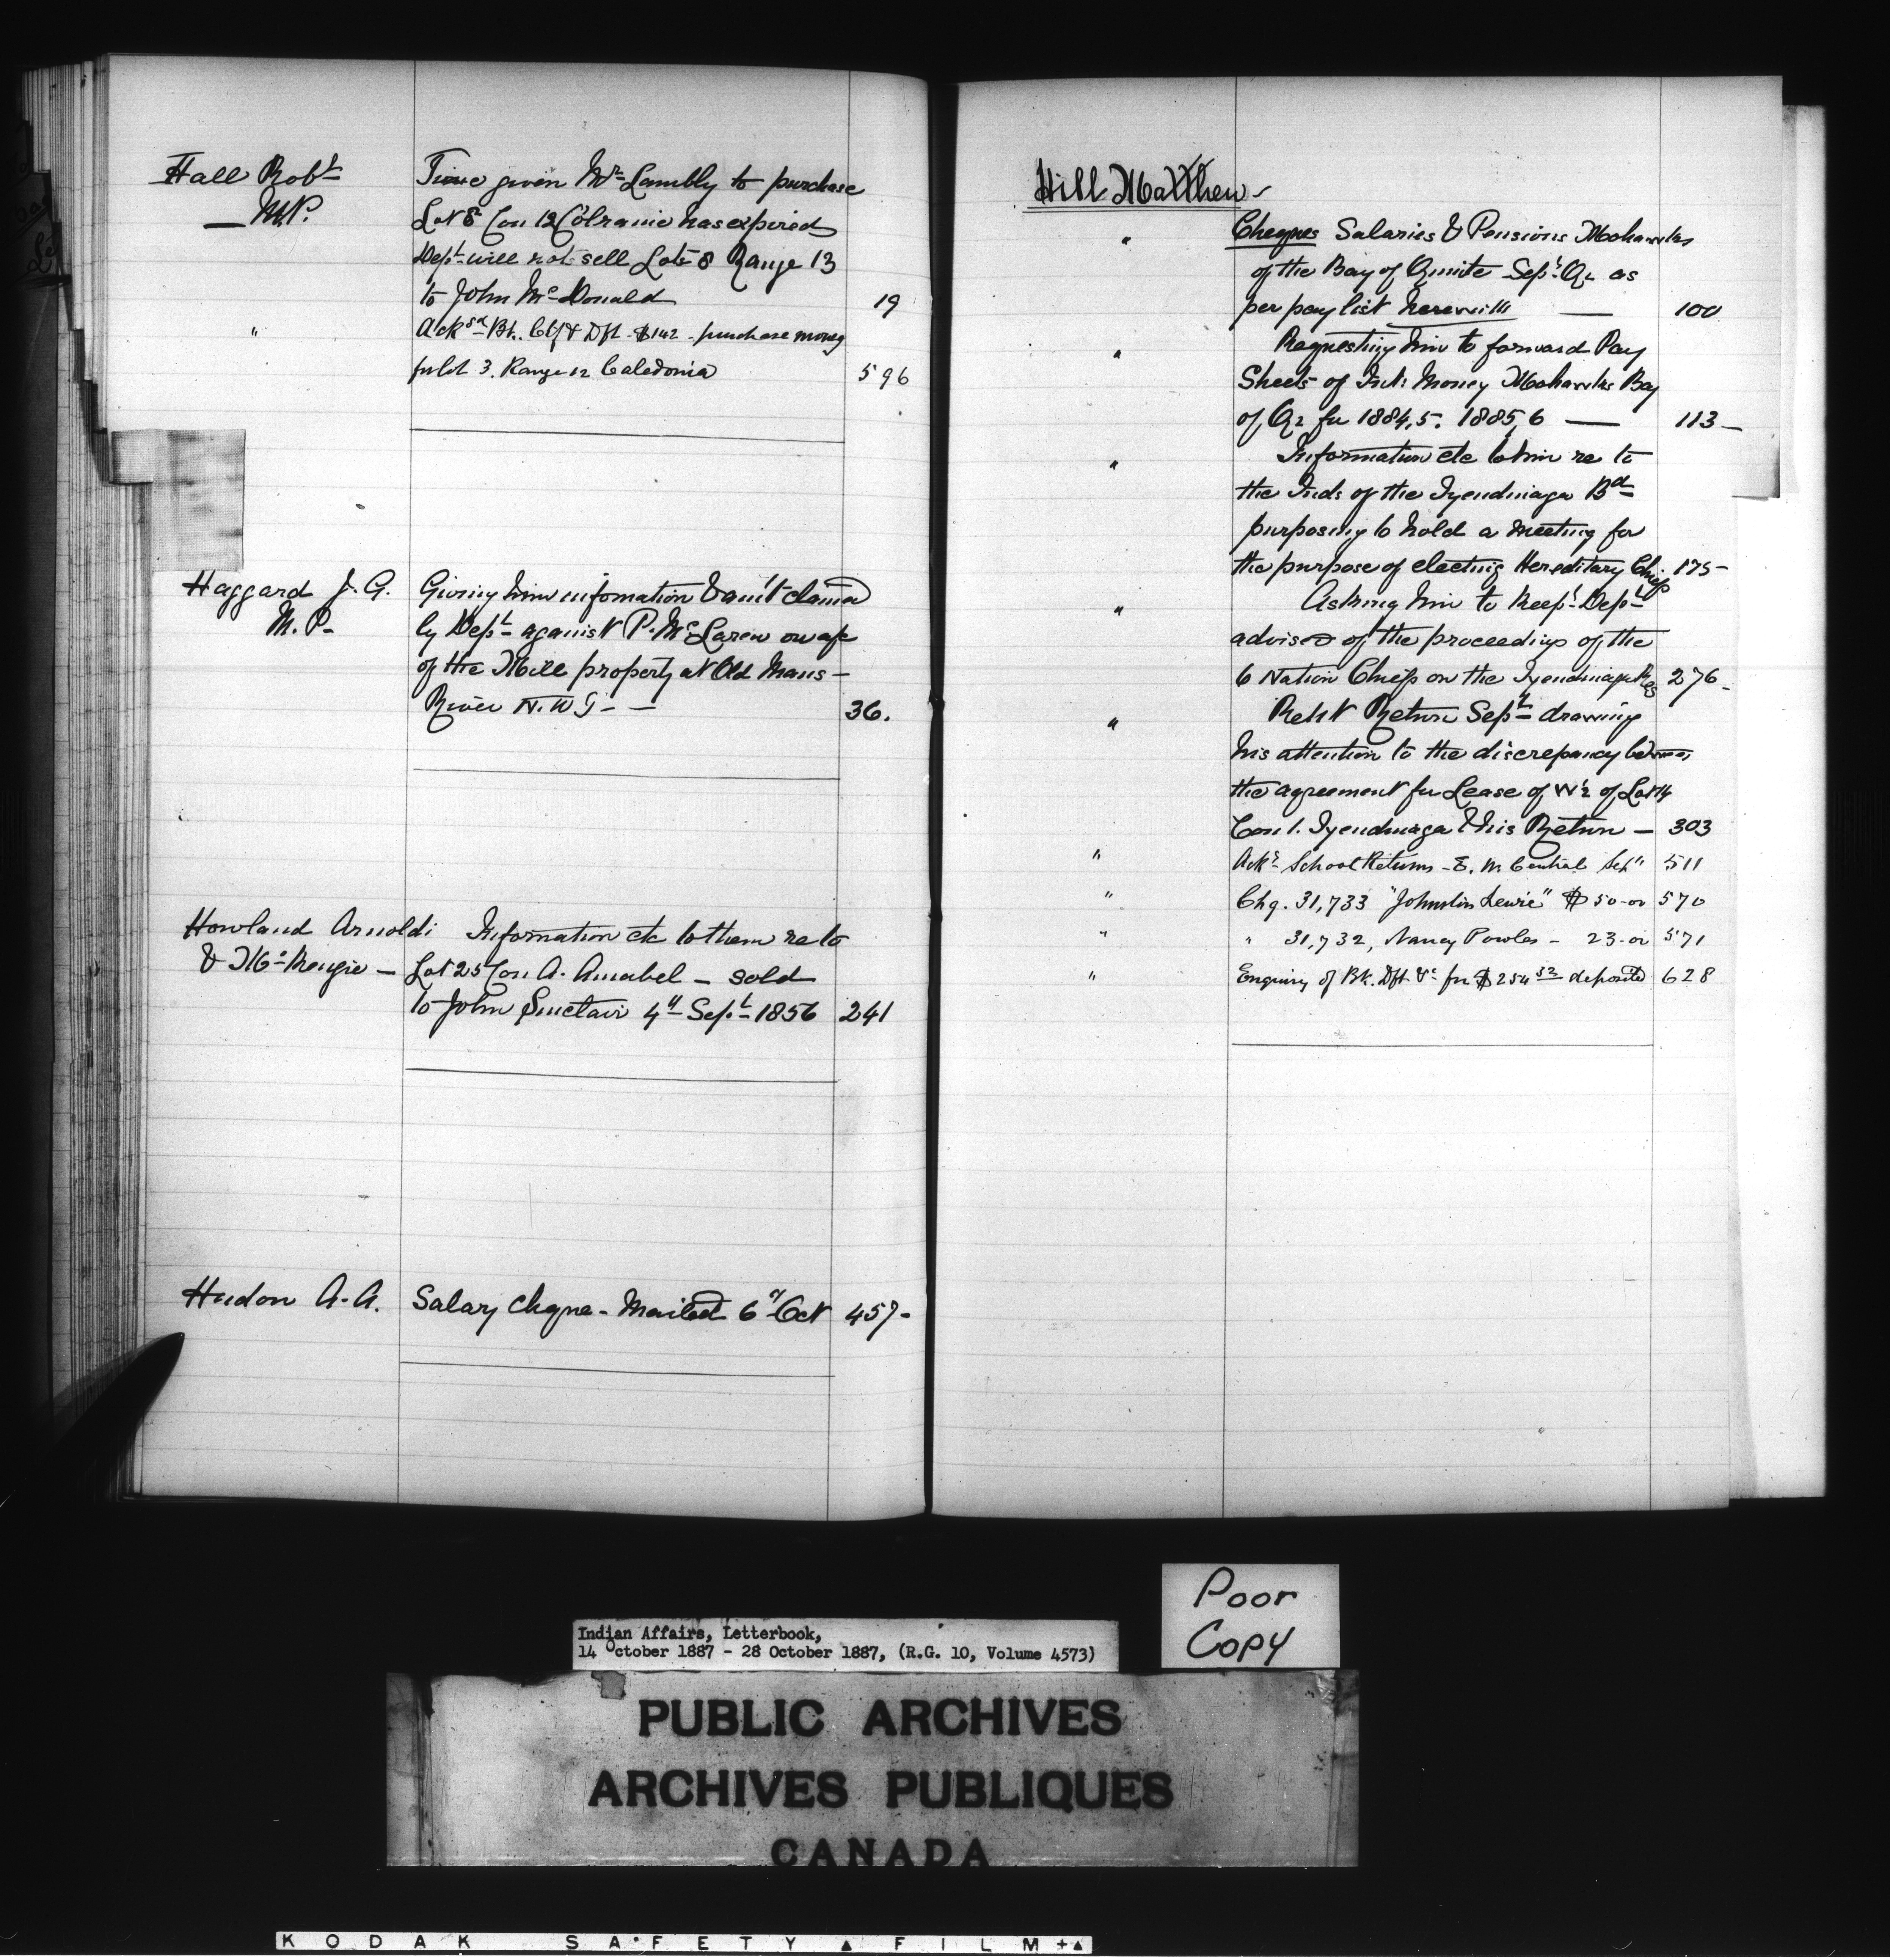 Hall Robt Time given Mr Lambly to purchase
— M.P. Lot 8 Con 12 Colraine has expired
Dept will not sell Lot 8 Range 13
to John McDonald 19
" Ack Bk. Ctf & Dft - $142 - purchase money
for lot 3. Range 12 Caledonia 596
Haggard J. G. Giving him infomation & amt claimed
M.P. by Dept against P. McLaren on a/c
of the Mill property at Old Mans —
River N.W.T — — 36.
Howland Arnoldi Information etc to them re to
& McKenzie — Lot 25 Con A. Amabel — sold
to John Sinclair 4th Sept 1856 241
Hudon A. A. Salary Cheque - Mailed 6th Oct 457 -
Hill Matthew -
" Cheques Salaries & Pensions Mohawks
of the Bay of Quinte Sept Qr as
per pay list herewith — 100
" Requesting him to forward Pay
Sheets of Int: Money Mohawks Bay
of Q2 for 1884,5. 1885,6 — 113 —
" Information etc to him re to
the Inds of the Tyendinaga Bd
purposing to hold a meeting for
the purpose of electing Hereditary Chiefs 175 -
" Asking him to keep Dept
advised of the proceedings of the
6 Nation Chiefs on the Tyendinaga Res 276 -
" Return Sept drawing
his attention to the discrepancy between
the agreement for Lease of W½ of Lot
Con 1. Tyendinaga & his Return — 303
" Ackg School Returns - E. M. Central Sept 511
" Chq. 31,733 "Johnston Lewis" $50-00 570
" " 31,732, Nancy Powles - 23-00 571
" Enquiry of Bk. Dft &c for $254 52 deposited 628
Poor
Copy
Indian Affairs, Letterbook,
14 October 1887 - 28 October 1887, (R.G. 10, Volume 4573)
PUBLIC ARCHIVES
ARCHIVES PUBLIQUES
CANADA
KODAK SAFETY FILM